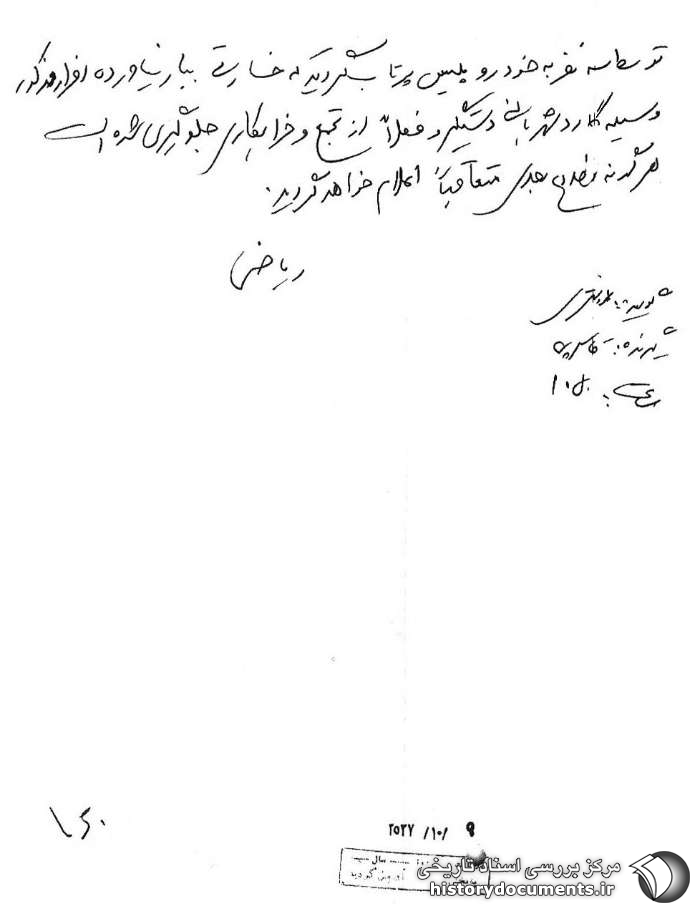 توسط سه نفر به خودرو پلیس پرتاب گردید که خسارتی ببار نیاورده افراد مذکور
وسیله گارد شهربانی دستگیر و فعلاً از تجمع و خرابکاری جلوگیری شده است
هرگونه وضع بعدی متعاقباً اعلام خواهد گردید.
ریاضی
گوینده:
گیرنده:
ساعت:
۲۵۳۷/۱۰/ ۹
سال
گردید
مرکز بررسی اسناد تاریخی
historydocuments.ir